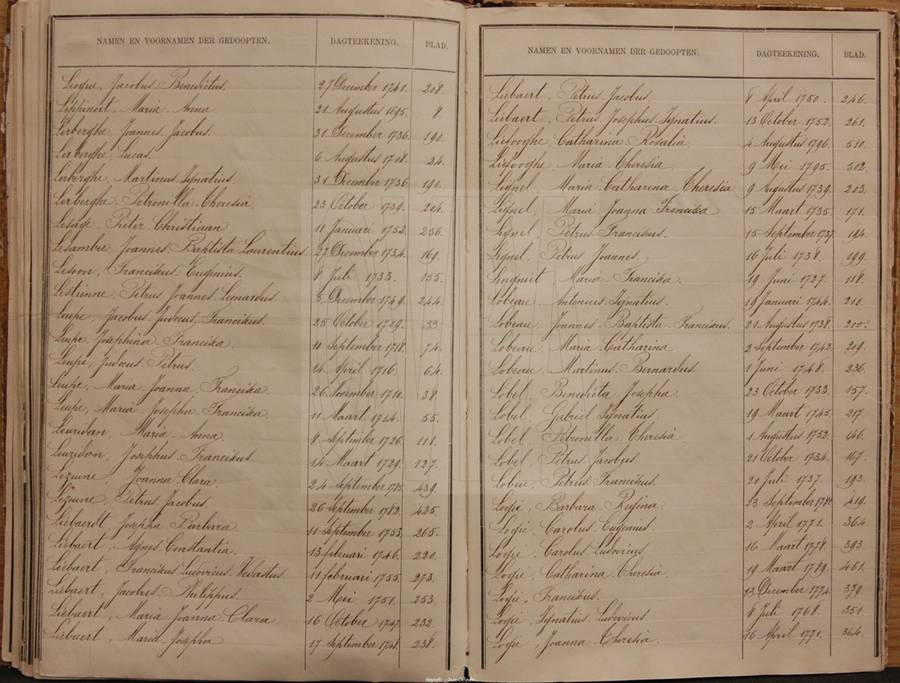 NAMEN EN VOORNAMEN DER GEDOOPTEN. DAGTEEKENING. BLAD.
Jacobus Benedictus. 27 December 1741. 208.
Maria Anna 21 Augustus 1695. 8
Lerberghe, Joannes Jacobus. 31 December 1736. 190.
Lerberghe, Lucas. 6 Augustus 1708. 24.
Lerberghe, Martinus Ignatius. 31 December 1736. 190.
Lerberghe, Petronilla Theresia 23 October 1739. 204.
Lesage, Pieter Christiaan 11 Januari 1752. 256.
Lesambre, Joannes Baptista Laurentius. 27 December 1734. 169.
Franciskus Eugenius. 8 Juli 1733. 155.
Lestienne, Petrus Joannes Leonardus 5 December 1749. 244.
Leupe, Jacobus Judocus Franciskus. 25 October 1709. 33.
Leupe, Josephina Franciska 10 September 1718. 74.
Leupe, Judocus Petrus. 14 April 1716. 64.
Leupe, Maria Joanna Franciska 26 November 1710. 38.
Leupe, Maria Josepha Franciska 11 Maart 1714. 55.
Leuridan, Maria Anna 8 September 1726. 118.
Leuridon, Josephus Franciskus 14 Maart 1729. 127.
Joanna Clara 24 September 439.
Petrus Jacobus. 26 September 1782. 425.
Liebaerdt, Josepha Barbara 11 September 1753. 265.
Liebaert, Agnes Constantia. 13 februari 1746. 220.
Liebaert, Franciskus Ludovicus 11 februari 1755. 273.
Liebaert, Jacobus Philippus. 2 Mei 1751. 253.
Liebaert, Maria Joanna Clara 16 October 1747. 232.
Liebaert, Maria Josepha 17 September 1748. 238.
NAMEN EN VOORNAMEN DER GEDOOPTEN. DAGTEEKENING. BLAD.
Liebaert, Petrus Jacobus. 8 April 1750. 246.
Liebaert, Petrus Josephus Ignatius. 13 October 1752. 261.
Liefooghe, Catharina Rosalia 4 Augustus 1796. 510.
Liefooghe, Maria Theresia 9 Mei 1795. 502.
Lignel, Maria Catharina Theresia 9 Augustus 1739. 203.
Lignel, Maria Joanna Franciska 15 Maart 1735. 171.
Lignel, Petrus Franciskus. 15 September 1737. 194.
Lignel, Petrus Joannes. 16 Juli 1738. 199.
Linguiet, Maria Franciska. 19 Juni 1727. 118.
Lobeau, Antonius Ignatius. 19 Januari 1744. 210.
Lobeau, Joannes Baptista Franciskus. 21 Augustus 1738. 200.
Lobeau, Maria Catharina. 2 September 1742. 209.
Lobeau, Martinus Bernardus. 1 Juni 1748. 236.
Lobel, Benedicta Josepha. 23 October 1733. 157.
Lobel, Gabriel Ignatius. 19 Maart 1745. 217.
Lobel, Petronilla Theresia 1 Augustus 1732. 146.
Lobel, Petrus Jacobus. 21 October 1734. 167.
Petrus Franciskus. 20 Juli 1737. 193.
Logie, Barbara Regina 23 September 419.
Logie, Carolus Eugenius 2 April 1771. 364.
Logie, Carolus Ludovicus. 16 Maart 1778. 393.
Logie, Catharina Theresia. 19 Maart 1789. 461.
Logie, Franciskus. 13 December 1774. 379.
Logie, Ignatius Ludovicus. 8 Juli 1768. 351.
Logie, Joanna Theresia. 16 April 1771. 364.